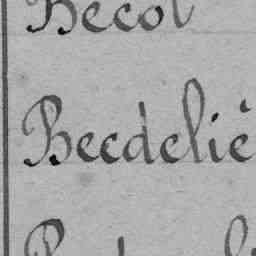 Becot
Becdeliè